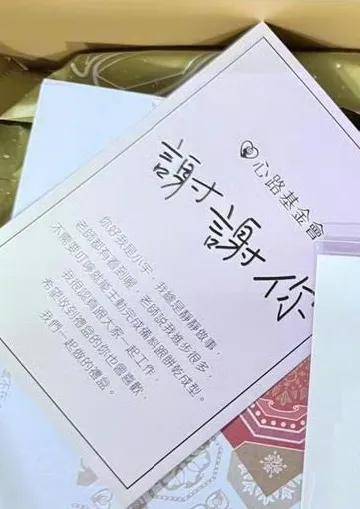 心路基金會
謝謝你
你好我是小宇，我總是靜靜做事，
老師都有看到喔，老師說我進步很多，
不需要叮嚀就能主動完成備料跟餅乾成型。
我很認真跟大家一起工作，
希望收到禮盒的你也會喜歡，
我們一起做的禮盒。